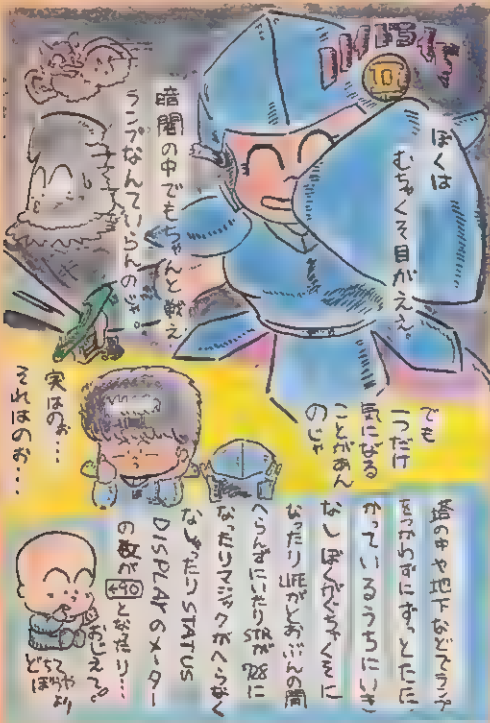 10
ぼくは
むちゃくそ目がええ。
暗闇の中でもちゃんと戦え
ランプなんていらんのじゃ。
でも
一つだけ
気になる
ことがあん
のじゃ
実はのぉ…
それはのぉ…
塔の中や地下などでランプ
をつかわずにずっとたた
かっているうちにいき
なしぼくがぐちゃくそに
なったりLIFEがとおぶんの間
へらんずにいたりSTRが98に
なったりマジックがへらなく
なじったりSTATUS
DISPLAYのメーター
の数が+90となったり…
おじえて。
どちて
ぼうやより